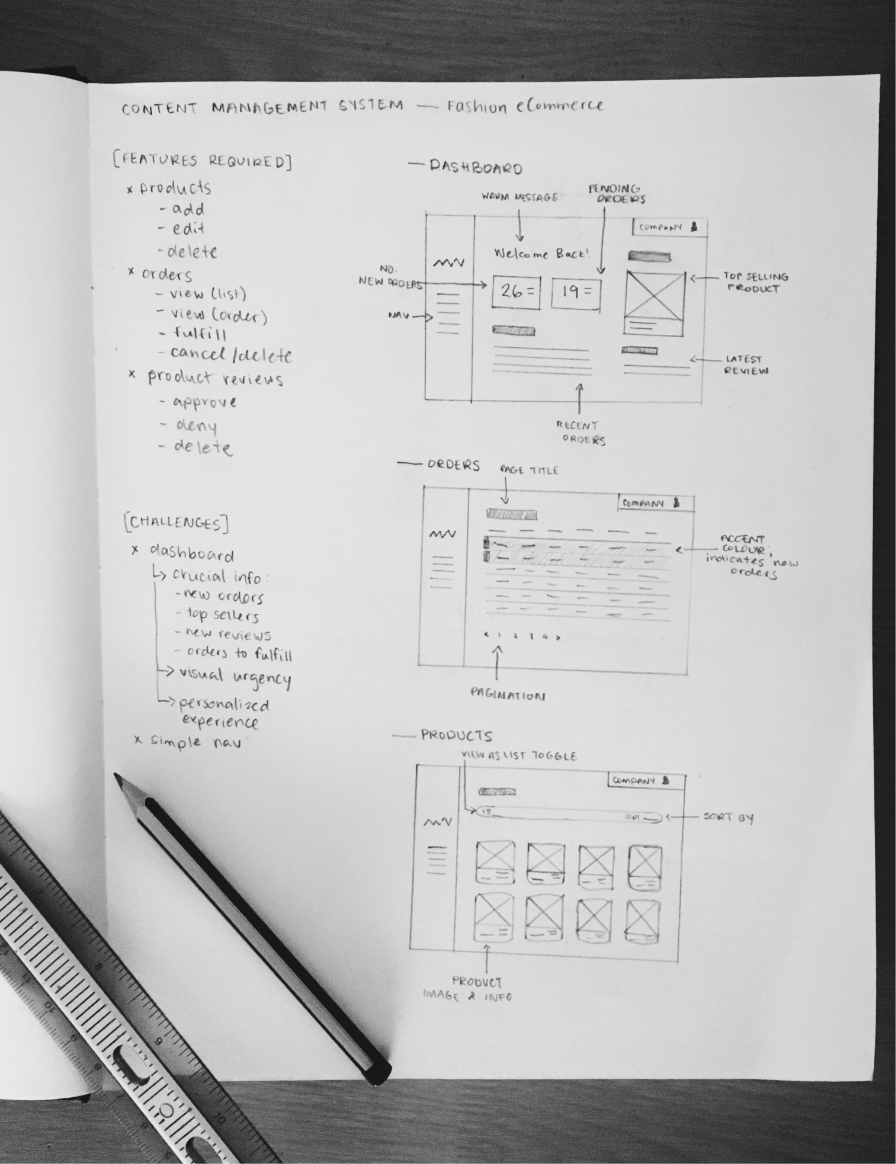 CONTENT MANAGEMENT SYSTEM — Fashion eCommerce
[FEATURES REQUIRED]
x products
- add
- edit
- delete
x orders
- view (list)
- view (order)
- fulfill
- cancel/delete
x product reviews
- approve
- deny
- delete
[CHALLENGES]
x dashboard
↳ crucial info:
- new orders
- top sellers
- new reviews
- orders to fulfill
→ visual urgency
→ personalized
experience
x simple nav
— DASHBOARD
WARM MESSAGE
PENDING
ORDERS
COMPANY
Welcome Back!
NO.
NEW ORDERS
26 =
19 =
TOP SELLING
PRODUCT
NAV
LATEST
REVIEW
RECENT
ORDERS
— ORDERS
PAGE TITLE
COMPANY
ACCENT
COLOUR,
indicates new
orders
< 1 2 3 4 >
PAGINATION
— PRODUCTS
VIEW AS LIST TOGGLE
COMPANY
SORT BY
PRODUCT
IMAGE & INFO